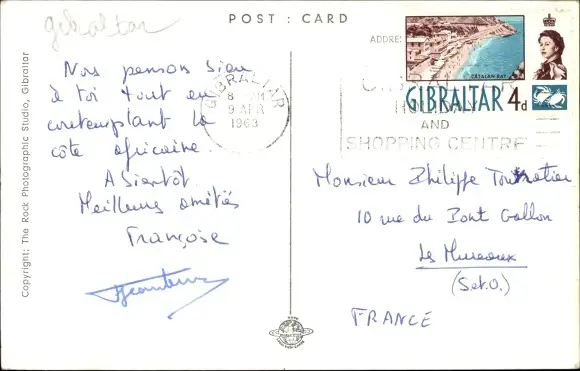 gibraltar
POST : CARD
ADDRE
CATALAN BAY
GIBRALTAR 4d
GIBRALTAR
8 M
9 APR
1963
HOLIDAY
AND
SHOPPING CENTRE
Copyright: The Rock Photographic Studio, Gibraltar
Nous pensons bien
à toi tout en
contemplant la
côte africaine.
A Bientôt
Meilleures amitiés
Françoise
Monsieur Philippe
10 rue du Pont Gallon
Les Mureaux
(S.et.O.)
FRANCE